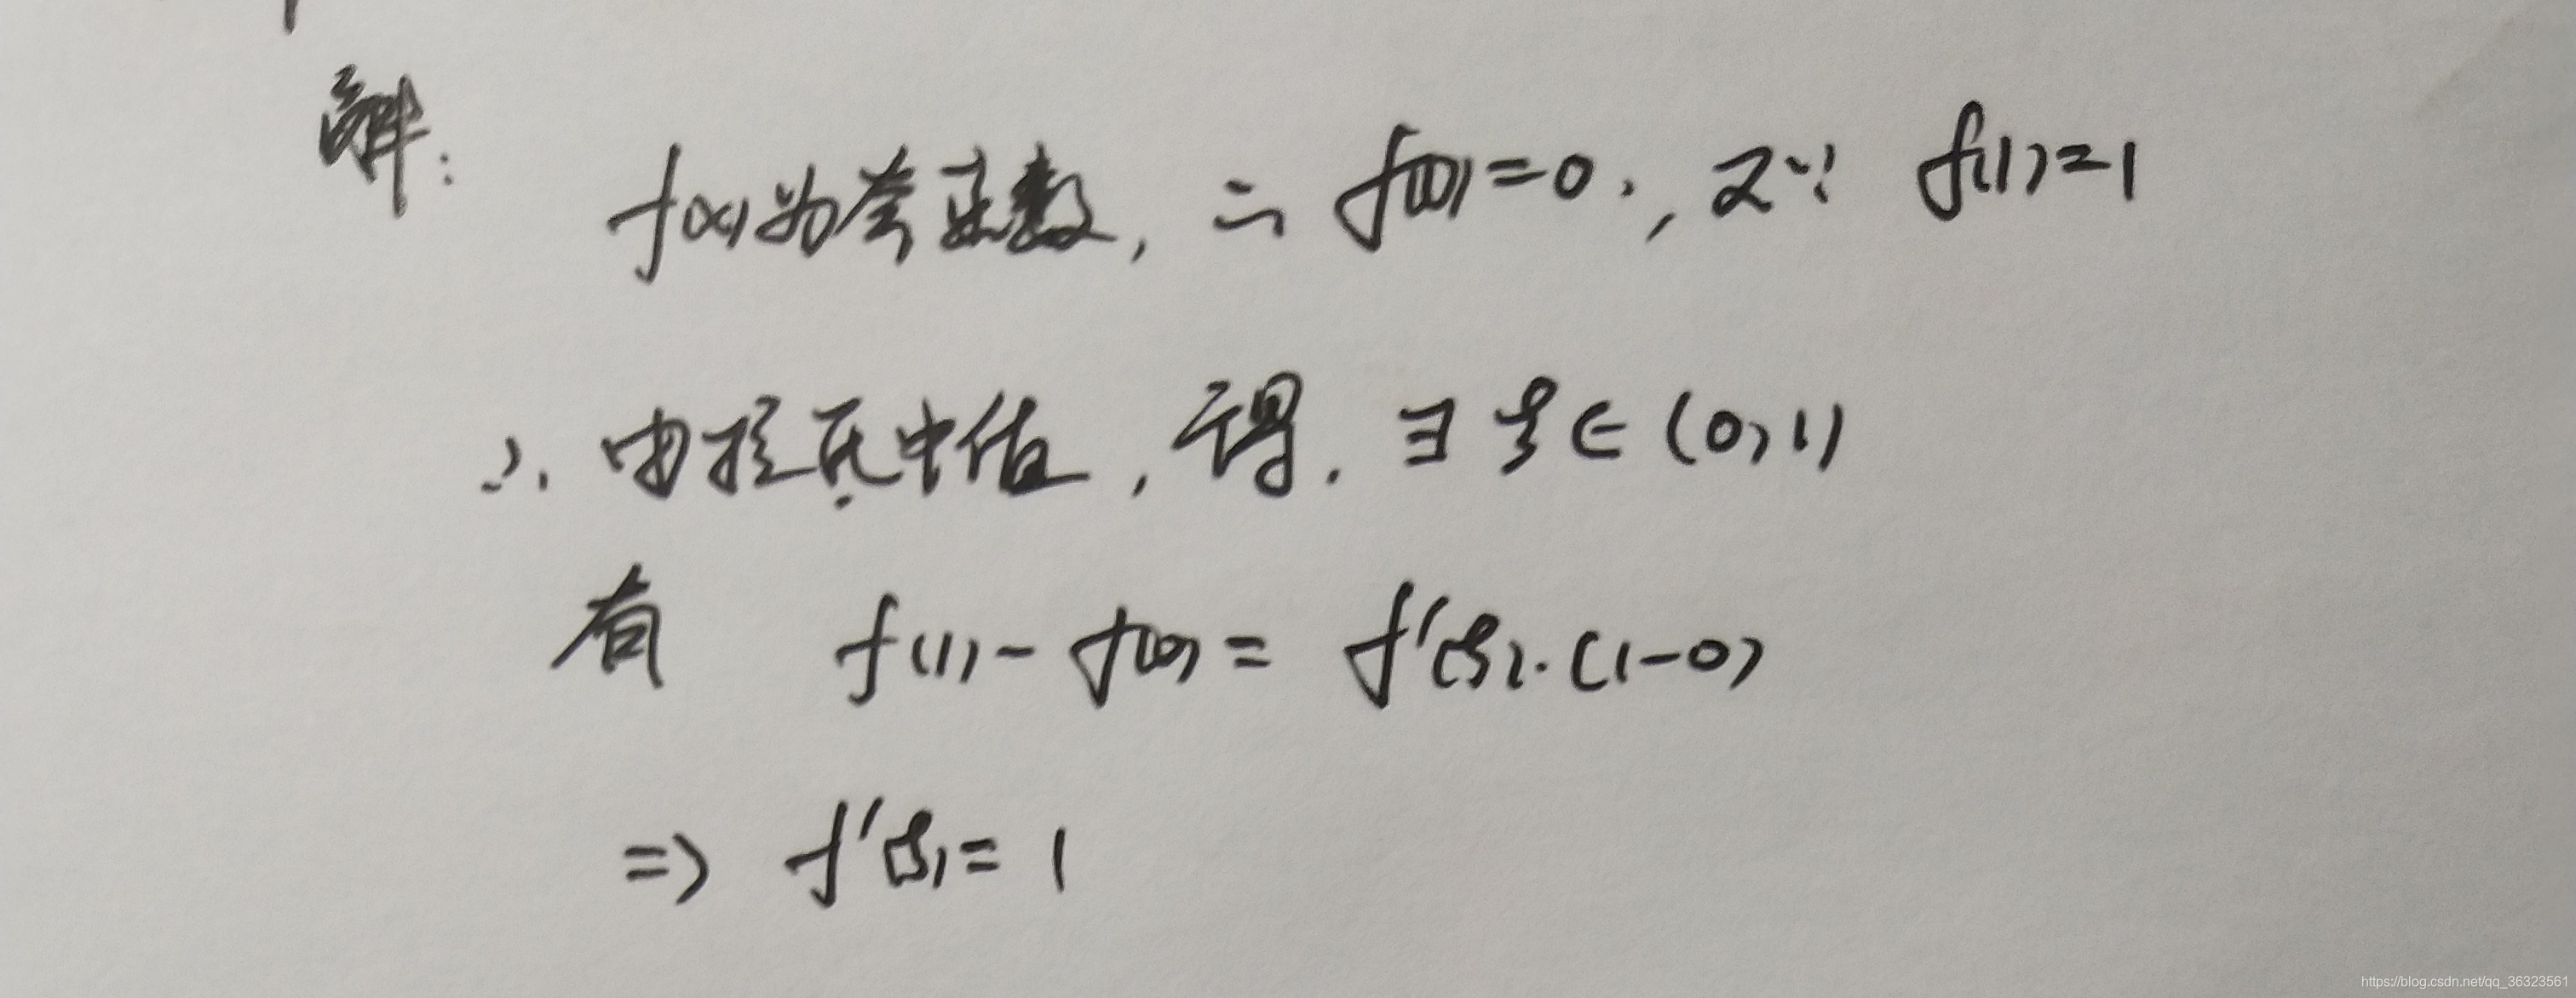 解:
f(x)为奇函数, ∴ f(0)=0., 又∵ f(1)=1
∴ 由拉氏中值, 得. ∃ ξ∈(0,1)
有 f(1)-f(0)= f'(ξ).(1-0)
=> f'(ξ)= 1
https://blog.csdn.net/qq_36323561